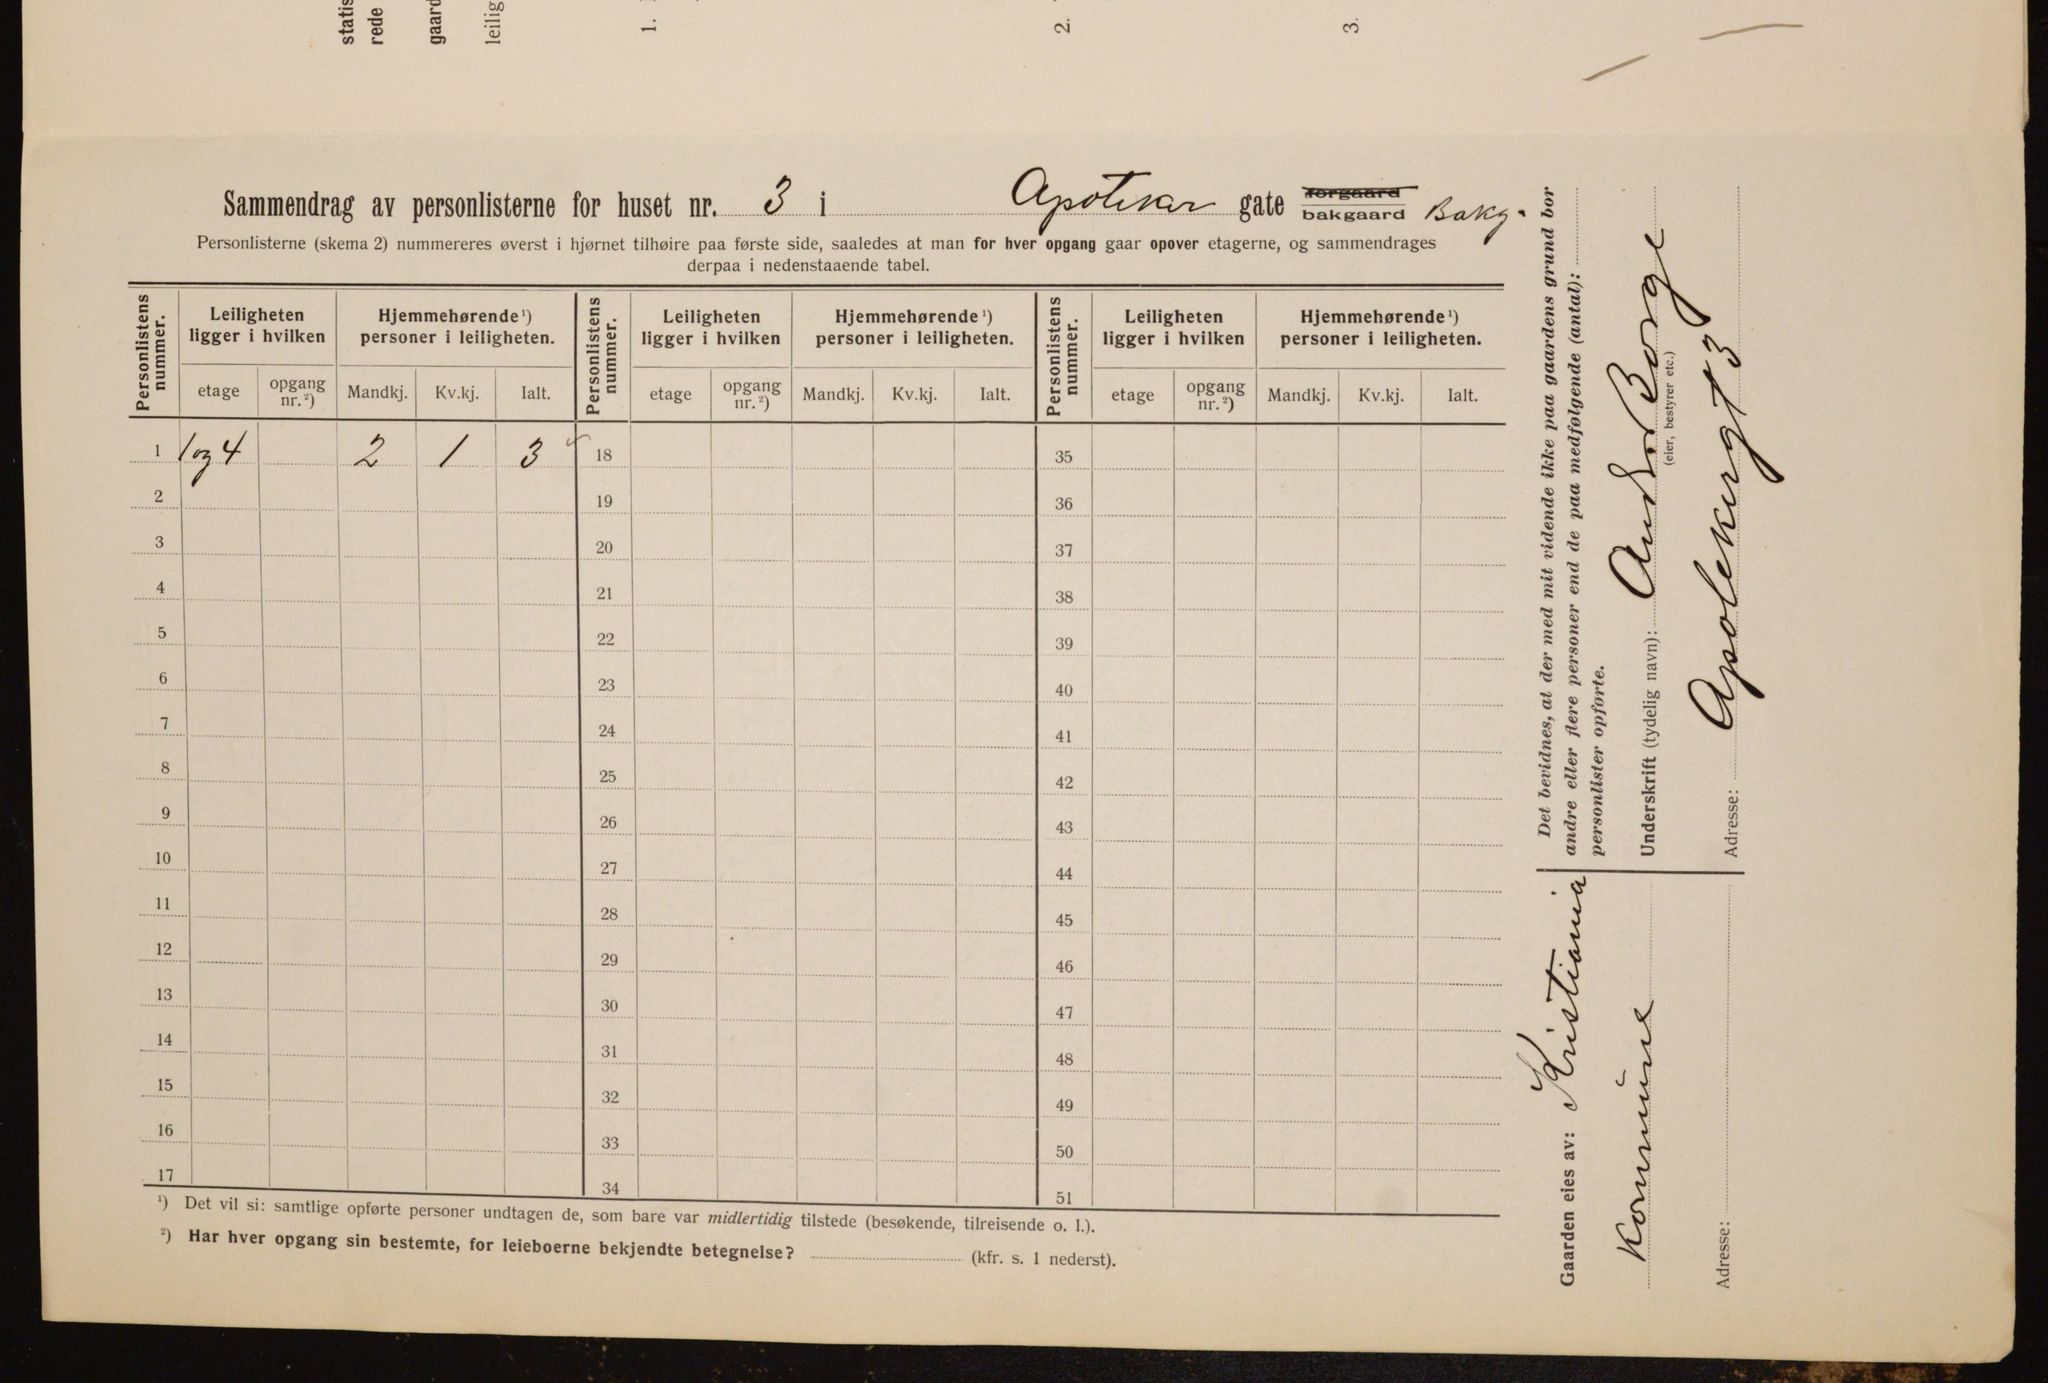 statis
rede
gaard
leilig
1.
2.
3.
Sammendrag av personlisterne for huset nr. 3 i Apoteker gate forgaard bakgaard Bakg.
Personlisterne (skema 2) nummereres øverst i hjørnet tilhøire paa første side, saaledes at man for hver opgang gaar opover etagerne, og sammendrages
derpaa i nedenstaaende tabel.
Personlistens nummer. Leiligheten ligger i hvilken Hjemmehørende¹) personer i leiligheten. Personlistens nummer. Leiligheten ligger i hvilken Hjemmehørende¹) personer i leiligheten. Personlistens nummer. Leiligheten ligger i hvilken Hjemmehørende¹) personer i leiligheten.
etage opgang nr.²) Mandkj. Kv.kj. Ialt. etage opgang nr.²) Mandkj. Kv.kj. Ialt. etage opgang nr.²) Mandkj. Kv.kj. Ialt.
1 1 og 4 2 1 3 18 35
2 19 36
3 20 37
4 21 38
5 22 39
6 23 40
7 24 41
8 25 42
9 26 43
10 27 44
11 28 45
12 29 46
13 30 47
14 31 48
15 32 49
16 33 50
17 34 51
¹) Det vil si: samtlige opførte personer undtagen de, som bare var midlertidig tilstede (besøkende, tilreisende o. l.).
²) Har hver opgang sin bestemte, for leieboerne bekjendte betegnelse? (kfr. s. 1 nederst).
Det bevidnes, at der med mit vidende ikke paa gaardens grund bor
andre eller flere personer end de paa medfølgende (antal):
personlister opførte.
Underskrift (tydelig navn): And. Borge
(eier, bestyrer etc.)
Adresse: Apotekergt 3
Gaarden eies av: Kristiania
Kommune
Adresse: